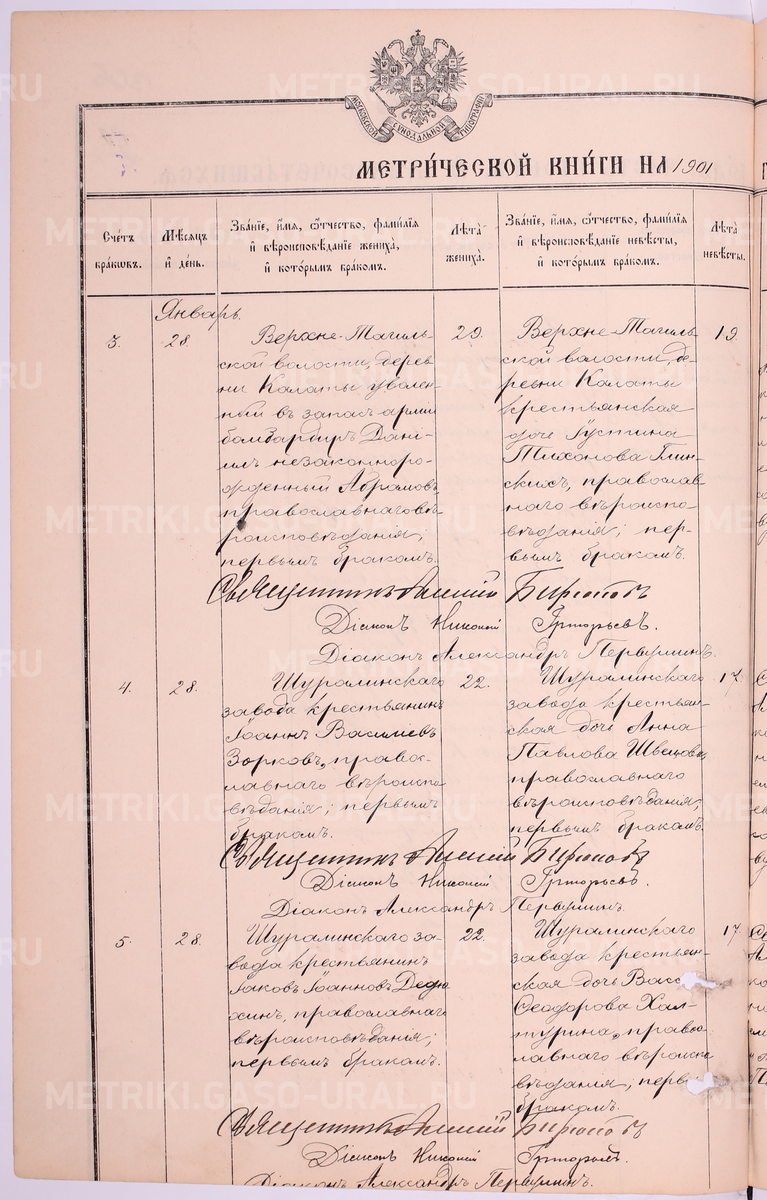 МОСКОВСКОЙ СѴНОДАЛЬНОЙ ТИПОГРАФІИ
МЕТРИ́ЧЕСКОЙ КНИ́ГИ НА 1901
Сче́тъ бра́кѡвъ.
Мѣ́сяцъ и҆ де́нь.
Зва́нїе, и҆́мѧ, ѻ҆́тчество, фами́лїѧ
и҆ вѣроисповѣ́данїе жениха̀,
и҆ кото́рымъ бра́комъ.
Лѣ́та
жениха̀.
Зва́нїе, и҆́мѧ, ѻ҆́тчество, фами́лїѧ
и҆ вѣроисповѣ́данїе невѣ́сты,
и҆ кото́рымъ бра́комъ.
Лѣта̀
невѣ́сты.
Январь.
3.
28.
Верхне-Тагиль-
ской волости, дерев
ни Калаты уволен
ный въ запасъ арміи
бомбардиръ Дані-
илъ незаконноро-
жденный Абрамовъ,
православнаго вѣ-
роисповѣданія;
первымъ бракомъ.
29.
Верхне-Тагиль
ской волости, де-
ревни Калаты
крестьянская
дочь Іустина
Тихонова Глин-
скихъ, православ-
наго вѣроиспо-
вѣданія; пер-
вымъ бракомъ.
19.
Священникъ Алексій Бирюковъ
Діаконъ Никоній Григорьевъ.
Діаконъ Александръ Первушинъ.
4.
28.
Шуралинскаго
завода крестьянинъ
Іоаннъ Василіевъ
Зорковъ, право-
славнаго вѣроиспо
вѣданія; первымъ
бракомъ.
22.
Шуралинскаго
завода крестьян-
ская дочь Анна
Павлова Швецова,
православнаго
вѣроисповѣданія,
первымъ бракомъ.
17.
Священникъ Алексій Бирюковъ
Діаконъ Никоній Григорьевъ.
Діаконъ Александръ Первушинъ.
5.
28.
Шуралинскаго за-
вода крестьянинъ
Іаковъ Іоанновъ Дедю
хинъ, православнаго
вѣроисповѣданія;
первымъ бракомъ.
22.
Шуралинскаго
завода крестьян-
ская дочь Васс
Ѳеодорова Хал-
турина, право-
славнаго вѣроиспо
вѣданія; первы
бракомъ.
17.
Священникъ Алексій Бирюковъ
Діаконъ Никоній Григорьевъ.
Діаконъ Александръ Первушинъ.
METRIKI.GASO-URAL.RU